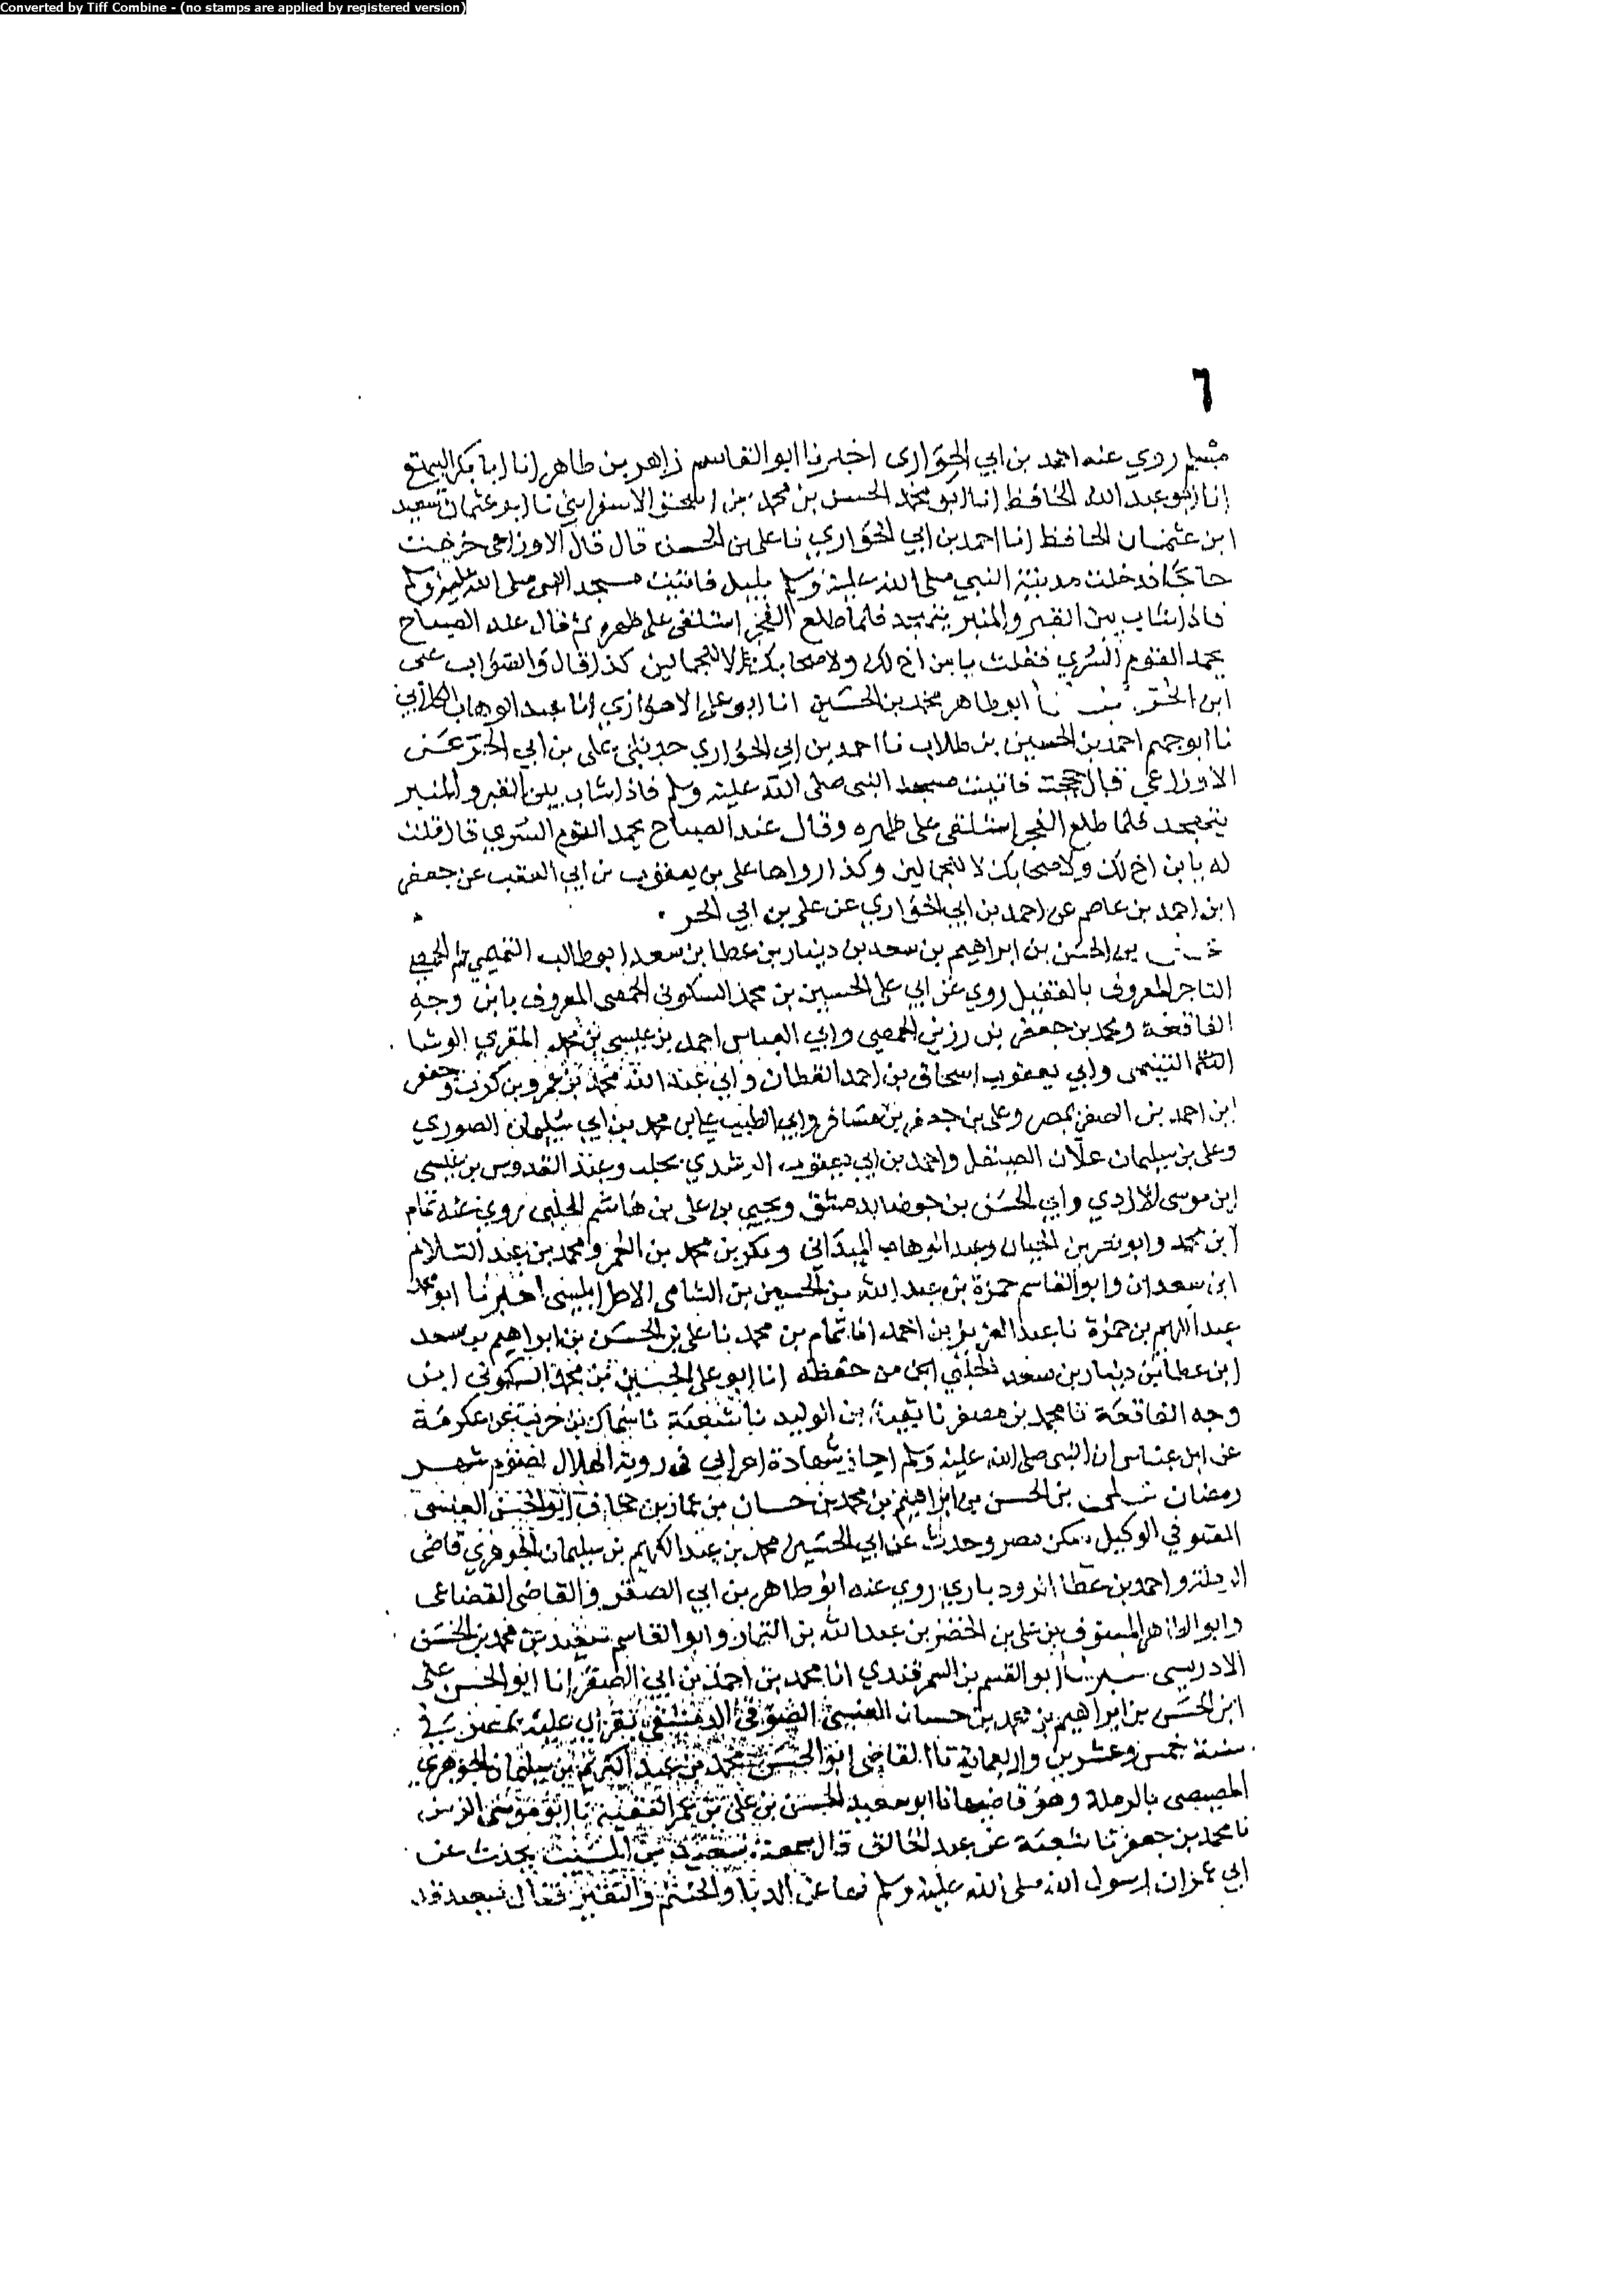 Converted by Tiff Combine - (no stamps are applied by registered version)
٦
روي عنه احمد بن ابي الحواري اخبرنا ابو القاسم زاهر بن طاهر انا ابا بكر البيهقي
انا ابو عبد الله الحافظ انا ابو محمد الحسن بن محمد بن اسحق الاسفرايني نا ابو عثمان سعيد
ابن عثمان الحافظ انا احمد بن ابي الحواري نا علي بن الحسن قال قال الاوزاعي خرجت
حاجا فدخلت مدينة النبي صلى الله عليه وسلم بليل فاتيت مسجد النبي صلى الله عليه وسلم
فاذا شاب بين القبر والمنبر يتهجد فلما طلع الفجر استلقى على ظهره ثم قال عند الصباح
يحمد القوم السري فقلت يا بن اخ لك ولاصحابك لا للجمالين كذا قال والصواب علي
ابن ابو طاهر محمد بن الحسين انا ابو علي الاهوازي انا عبد الوهاب الكلابي
نا ابو جهم احمد بن الحسين بن طلاب نا احمد بن ابي الحواري حدثني علي بن ابي الحر عن
الاوزاعي قال حججت فاتيت مسجد النبي صلى الله عليه وسلم فاذا شاب بين القبر والمنبر
يتهجد فلما طلع الفجر استلقى على ظهره وقال عند الصباح يحمد القوم السري قال قلت
له يا بن اخ لك ولاصحابك لا للجمالين وكذا رواها علي بن يعقوب بن ابي العقب عن جعفر
ابن احمد بن عاصم عن احمد بن ابي الحواري عن علي بن ابي الحر
بن الحسن بن ابراهيم بن سعد بن دينار بن عطا بن سعد ابو طالب
التاجر المعروف روي عن ابي علي الحسين بن محمد السكوني الحمصي المعروف بابن وجه
الفاقعة ومحمد بن جعفر بن رزين الحمصي وابي العباس احمد بن عيسى بن محمد المقري الوشا
التنيسي وابي يعقوب اسحاق بن احمد القطان وابي عبد الله محمد بن عمرو بن وجعفر
ابن احمد بن بمصر وعلي بن جعفر بن مسافر وابي الطيب علي بن محمد بن ابي سليمان الصوري
وعلي بن سليمان علان الصيقل واحمد بن ابي يعقوب بحلب وعبد القدوس بن عيسى
ابن موسى الازدي وابي الحسن بن جوصا بدمشق ويحيى بن علي بن هاشم الحلبي روي عنه تمام
ابن محمد وابو نصر بن الجبان وعبد الوهاب الميداني وبكر بن محمد بن ومحمد بن عبد السلام
ابن سعدان وابو القاسم حمزة بن عبد الله بن الحسين بن الشامي الاطرابلسي اخبرنا ابو محمد
عبد الكريم بن حمزة نا عبد العزيز بن احمد انا تمام بن محمد نا علي بن الحسن بن ابراهيم بن سعد
ابن عطا بن دينار بن سعد من حفظه انا ابو علي الحسين بن محمد السكوني ابن
وجه الفاقعة نا محمد بن مصفر نا بقية بن الوليد نا شعبة نا سماك بن عن عكرمة
عن ابن عباس ان النبي صلى الله عليه وسلم اجاز شهادة اعرابي في روية الهلال لصوم شهر
رمضان بن الحسن بن ابراهيم بن محمد بن حسان بن ابو الحسن العبسي
الوكيل سكن مصر وحدث عن ابي الحسين محمد بن عبد الكريم بن سليمان الجوهري قاضي
الرملة واحمد بن عطا الروذباري روي عنه ابو طاهر بن ابي الصقر والقاضي القضاعي
وابو بن علي بن الخضر بن عبد الله وابو القاسم سعيد بن محمد بن الحسن
الادريسي ابو القسم بن السمرقندي انا محمد بن احمد بن ابي الصقر انا ابو الحسن علي
ابن الحسن بن ابراهيم بن محمد بن حسان العبسي الصوفي الدمشقي بقراتي عليه بمصر في
سنة خمس وعشرين واربعماية نا القاضي ابو الحسين محمد بن عبد الكريم بن سليمان الجوهري
المصيصي بالرملة وهو قاضيها نا ابو سعيد الحسن بن علي بن عمر الفقيه نا ابو موسى الزمن
نا محمد بن جعفر نا شعبة عن عبد الخالق قال سمعت سعيد بن المسيب يحدث عن
ان رسول الله صلى الله عليه وسلم نها عن الدبا والحنتم والنقير فقال سعيد